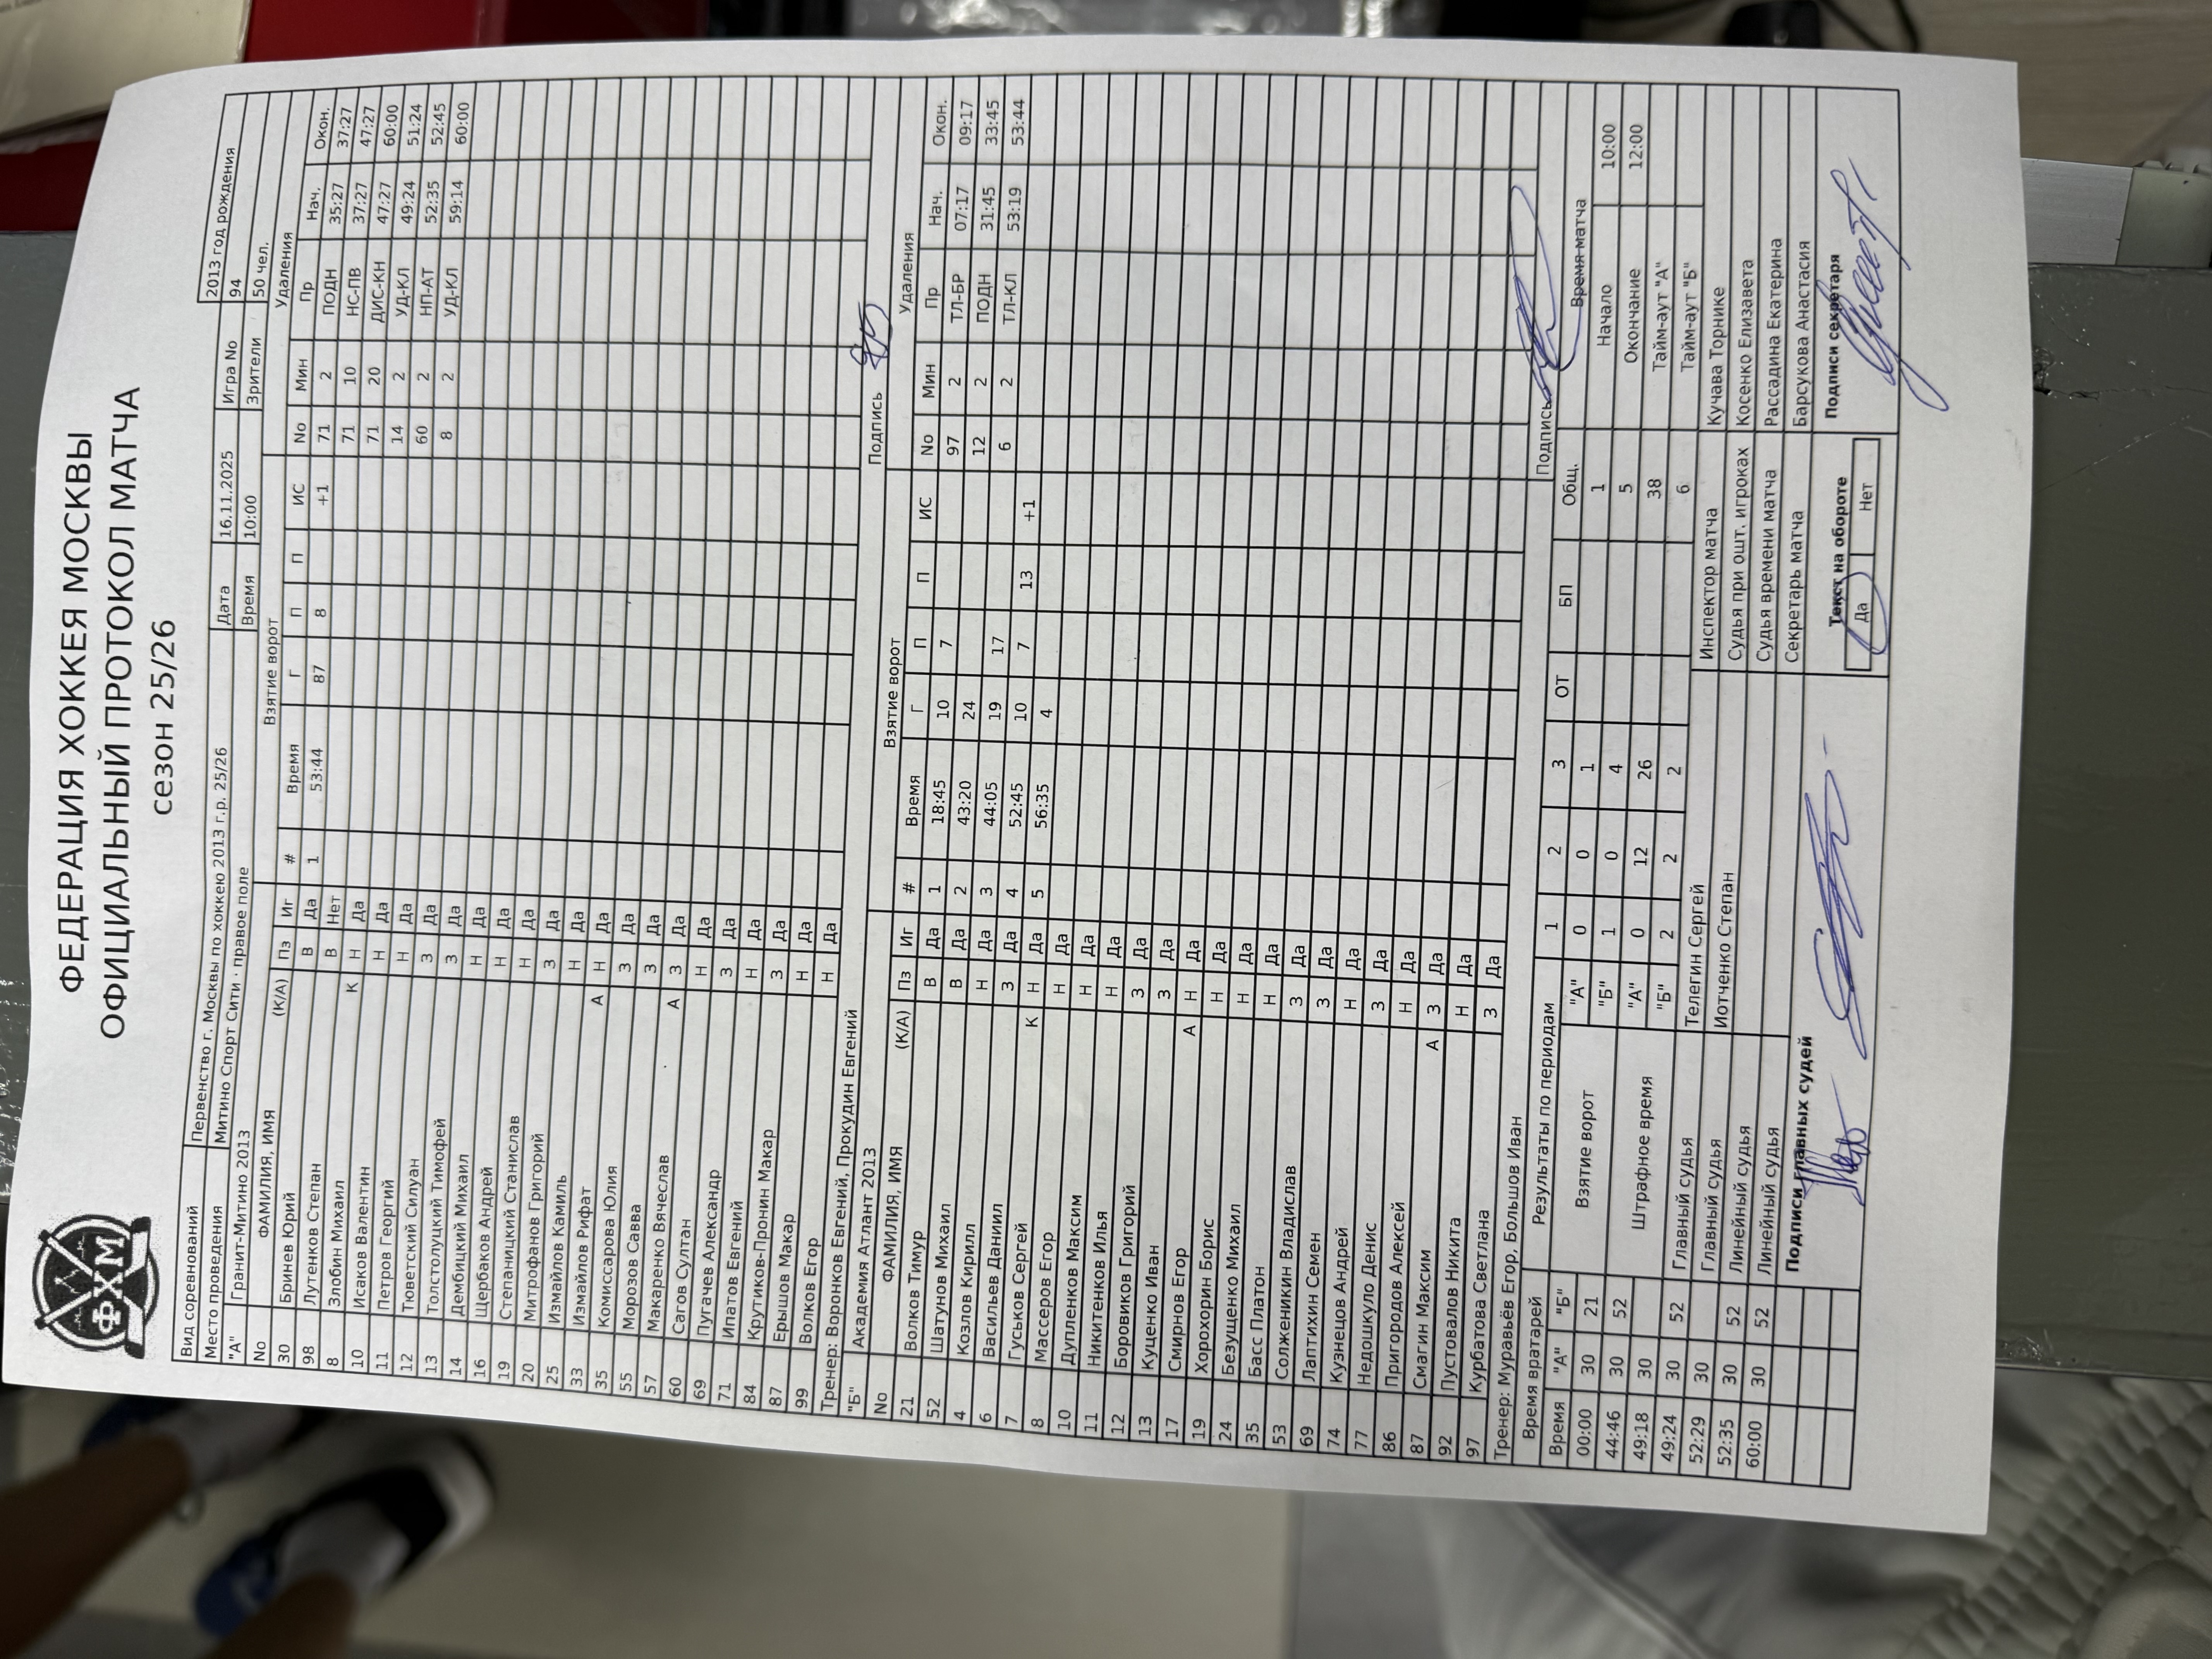 ФЕДЕРАЦИЯ ХОККЕЯ МОСКВЫ
ОФИЦИАЛЬНЫЙ ПРОТОКОЛ МАТЧА
сезон 25/26
ФХМ
Вид соревнований Первенство г. Москвы по хоккею 2013 г.р. 25/26 Дата 16.11.2025 Игра No 94 2013 год рождения
Место проведения Митино Спорт Сити · правое поле Время 10:00 Зрители 50 чел.
"А" Гранит-Митино 2013 Взятие ворот Удаления
No ФАМИЛИЯ, ИМЯ (К/А) Пз Иг # Время Г П П ИС No Мин Пр Нач. Окон.
30 Бринев Юрий В Да 1 53:44 87 8 +1 71 2 ПОДН 35:27 37:27
98 Лутенков Степан В Нет 71 10 НС-ПВ 37:27 47:27
8 Злобин Михаил К Н Да 71 20 ДИС-КН 47:27 60:00
10 Исаков Валентин Н Да 14 2 УД-КЛ 49:24 51:24
11 Петров Георгий Н Да 60 2 НП-АТ 52:35 52:45
12 Тюветский Силуан З Да 8 2 УД-КЛ 59:14 60:00
13 Толстолуцкий Тимофей З Да
14 Дембицкий Михаил Н Да
16 Щербаков Андрей Н Да
19 Степаницкий Станислав Н Да
20 Митрофанов Григорий З Да
25 Измайлов Камиль Н Да
33 Измайлов Рифат А Н Да
35 Комиссарова Юлия З Да
55 Морозов Савва З Да
57 Макаренко Вячеслав А З Да
60 Сагов Султан Н Да
69 Пугачев Александр З Да
71 Ипатов Евгений Н Да
84 Крутиков-Пронин Макар З Да
87 Ерышов Макар Н Да
99 Волков Егор Н Да
Тренер: Воронков Евгений, Прокудин Евгений Подпись
"Б" Академия Атлант 2013 Взятие ворот Удаления
No ФАМИЛИЯ, ИМЯ (К/А) Пз Иг # Время Г П П ИС No Мин Пр Нач. Окон.
21 Волков Тимур В Да 1 18:45 10 7 97 2 ТЛ-БР 07:17 09:17
52 Шатунов Михаил В Да 2 43:20 24 12 2 ПОДН 31:45 33:45
4 Козлов Кирилл Н Да 3 44:05 19 17 6 2 ТЛ-КЛ 53:19 53:44
6 Васильев Даниил З Да 4 52:45 10 7 13 +1
7 Гуськов Сергей К Н Да 5 56:35 4
8 Массеров Егор Н Да
10 Дупленков Максим Н Да
11 Никитенков Илья Н Да
12 Боровиков Григорий З Да
13 Куценко Иван З Да
17 Смирнов Егор А Н Да
19 Хорохорин Борис Н Да
24 Безущенко Михаил Н Да
35 Басс Платон Н Да
53 Солженикин Владислав З Да
69 Лаптихин Семен З Да
74 Кузнецов Андрей Н Да
77 Недошкуло Денис З Да
86 Пригородов Алексей Н Да
87 Смагин Максим А З Да
92 Пустовалов Никита Н Да
97 Курбатова Светлана З Да
Тренер: Муравьёв Егор, Большов Иван Подпись
Время вратарей Результаты по периодам 1 2 3 ОТ БП Общ. Время матча
Время "А" "Б" Взятие ворот "А" 0 0 1 1 Начало 10:00
00:00 30 21 "Б" 1 0 4 5 Окончание 12:00
44:46 30 52 Штрафное время "А" 0 12 26 38 Тайм-аут "А"
49:18 30 "Б" 2 2 2 6 Тайм-аут "Б"
49:24 30 52 Главный судья Телегин Сергей Инспектор матча Кучава Торнике
52:29 30 Главный судья Иотченко Степан Судья при ошт. игроках Косенко Елизавета
52:35 30 52 Линейный судья Судья времени матча Рассадина Екатерина
60:00 30 52 Линейный судья Секретарь матча Барсукова Анастасия
Подписи главных судей Текст на обороте Подписи секретаря
Да Нет